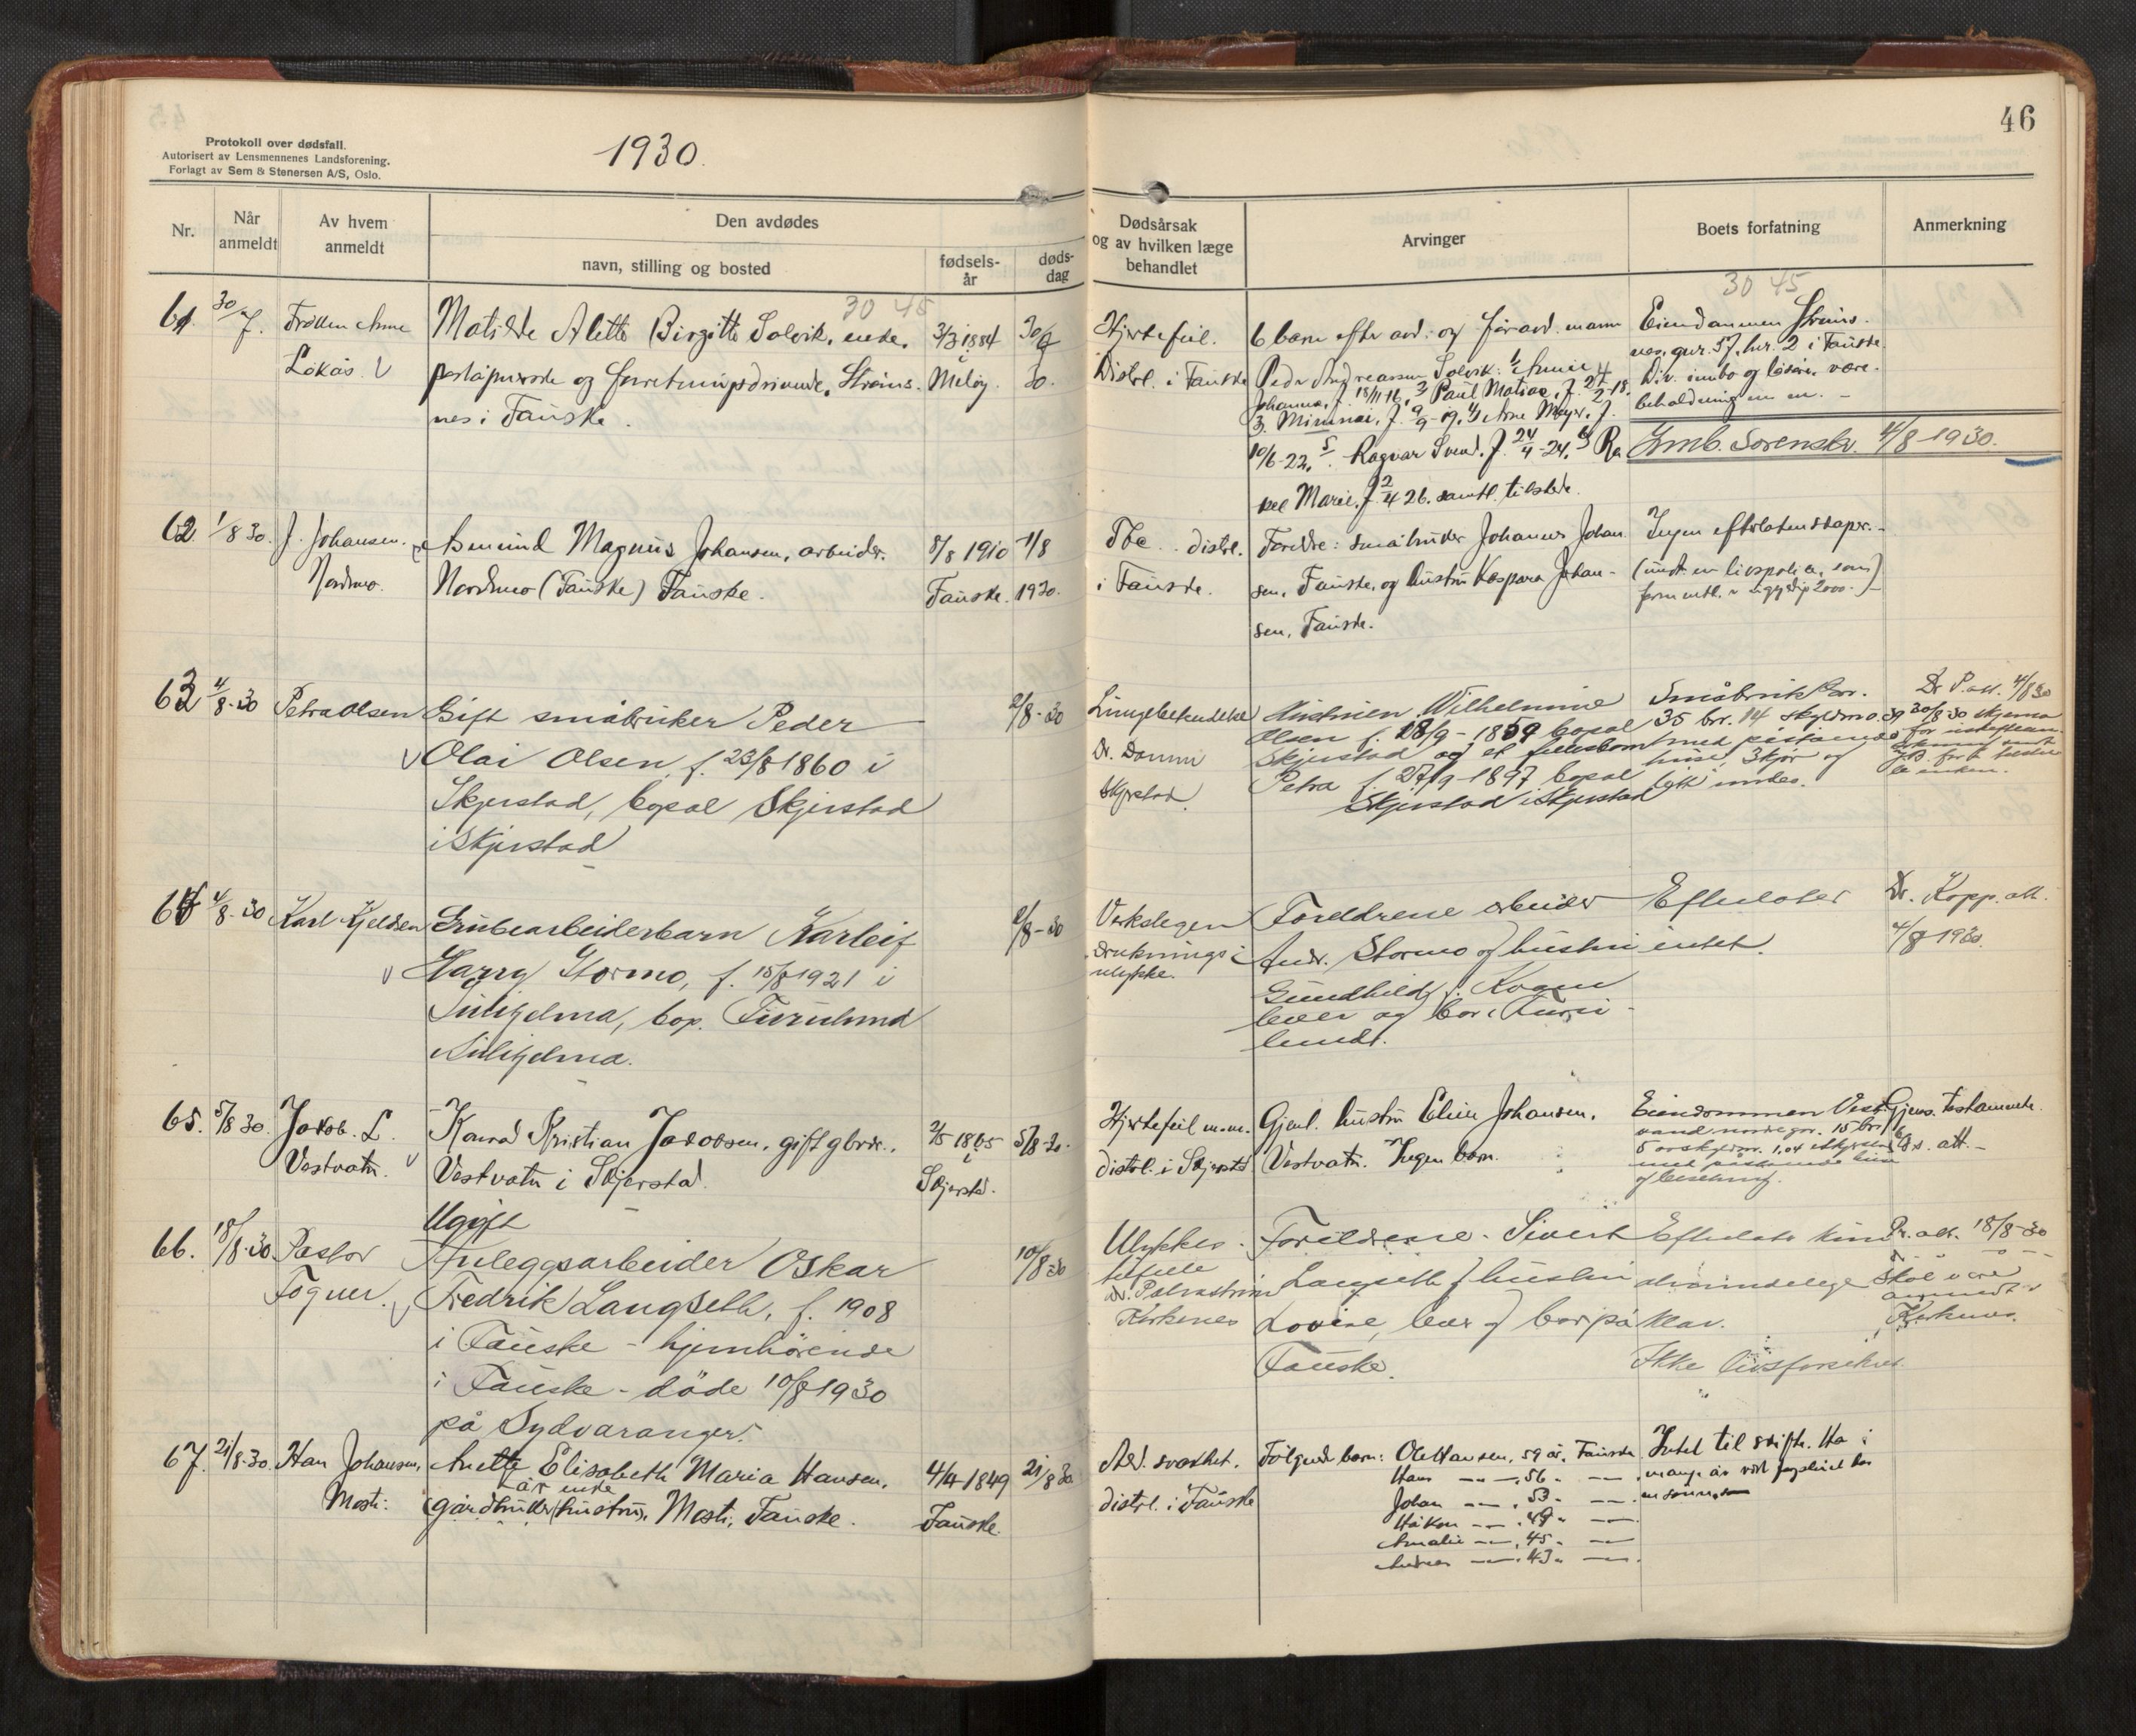 46
Protokoll over dødsfall.
Autorisert av Lensmennenes Landsforening.
Forlagt av Sem & Stenersen A/S, Oslo.
1930.
Nr.
Når anmeldt
Av hvem anmeldt
Den avdødes
navn, stilling og bosted
fødsels-år
døds-dag
Dødsårsak og av hvilken læge behandlet
Arvinger
Boets forfatning
Anmerkning
30 45
30 45
61. 30/7. Frøken Anne
Løkås
Matilde Alette Birgitte Solvik, enke,
poståpnerske og forretningsdrivende, Strøms-
nes i Fauske.
3/3 1884
i
Meløy.
30/7
30.
Hjertefeil.
Distrl. i Fauske
6 barn efter avd. og før avd. mann
Peder Andreassen Solvik: 1/ Annie
Johanna, f. 18/11-16, 2/ Paul Matias, f. 24/2-18.
3/ Minnie, f. 9/9-19, 4/ Arne Meyer, f.
10/6-22, 5/. Ragnar Svend, f. 24/4-24, 6/ Ra
kel Marie, f. 2/4 26. samtl. tilstede.
Eiendommen Strøms-
nes, gnr. 57, bnr. 2 i Fauske.
Div. innbo og løsøre, vare-
beholdning m. m. -
Innb. Sorenskr. 4/8-1930.
62 1/8 30. J. Johansen.
Nordmo.
Asmund Magnus Johansen, arbeider.
Nordmo (Fauske) Fauske.
8/8 1910
Fauske.
1/8
1930.
Tbc. distrl.
i Fauske.
Foreldre: småbruker Johannes Johan
sen, Fauske, og hustru Kaspara Johan-
sen, Fauske.
Ingen efterlatenskaper.-
(undt. en livspolise, som
2000.-)
63 4/8-30 Petra Olsen
Gift småbruker Peder
Olai Olsen, f. 23/8 1860 i
Skjerstad, bopæl Skjerstad
i Skjerstad
2/8-30
Lungebetendelse
Dr. Damm
Skjerstad.
Hustruen Wilhelmine
Olsen f. 28/9-1859 bopæl
Skjerstad og et fellesbarn
Petra f. 27/9-1897 bopæl
Skjerstad i Skjerstad
Småbruk gnr.
35 bnr. 14 skyldm. 0.39
med påstående
huse, 3 kjør og
litt innbo.
Dr P. att. 4/8 30
30/8-30 skjema
64 4/8-30 Karl Kjeldsen
Grubearbeiderbarn Karleif
Harry Stormo, f. 15/8 1921 i
Sulitjelma, bop. Furulund
Sulitjelma.
2/8-30
Verkslegen
druknings-
ulykke.
Foreldrene arbeider
Andr. Stormo og hustru
Gundhild f. Kogen
lever og bor i Furu-
lund.
Efterlater
intet.
Dr. Kopp. att.
4/8-1930.
65. 5/8 30. Jakob. L.
Vestvatn.
Konrad Kristian Jakobsen, gift gbrk.,
Vestvatn i Skjerstad.
2/5 1865
i
Skjerstad.
5/8-30.
Hjertefeil m.m.
distrl. i Skjerstd
Gjenl. hustru Eline Johansen,
Vestvatn. Ingen barn.
Eiendommen Vest-
vand nordre gnr. 15 bnr.
5 av skyldm. 1,04 i Skjerstad
med påstående huse
og besetning.
Gjens. testamente
att. -
66. 18/8-30. Pastor
Fogner.
Ugift
Anleggsarbeider Oskar
Fredrik Langseth, f. 1908
i Fauske - hjemhörende
i Fauske - døde 10/8 1930
på Sydvaranger.
10/8-30
Ulykkes-
tilfelle
dr. Palmstrøm
Kirkenes
Foreldrene - Sivert
Langseth og hustru
Lovise, lever og bor på
Fauske.
Efterlater kun
almindelige
klær.
Ikke livsforsikret.
Pr. att. 18/8-30
Skal være
anmeldt i
Kirkenes.
67. 21/8-30. Han Johansen,
Mosti:
Anette Elisabeth Maria Hansen,
kår enke
(gårdbruker)hustru, Mosti, Fauske.
4/4 1849
Fauske.
21/8 30
Ald. svakhet.
distrl. i Fauske
Følgende barn: Ole Hansen, 59 år, Fauske
Hans — — , 56 - — —
Johan — — , 53 - — —
Håkon — — , 49 - — —
Amalie — — , 45 - — —
Andreas — — , 43 - — —
Intet til skifte. Ha i
mange år vært forpleiet hos
en sønn.